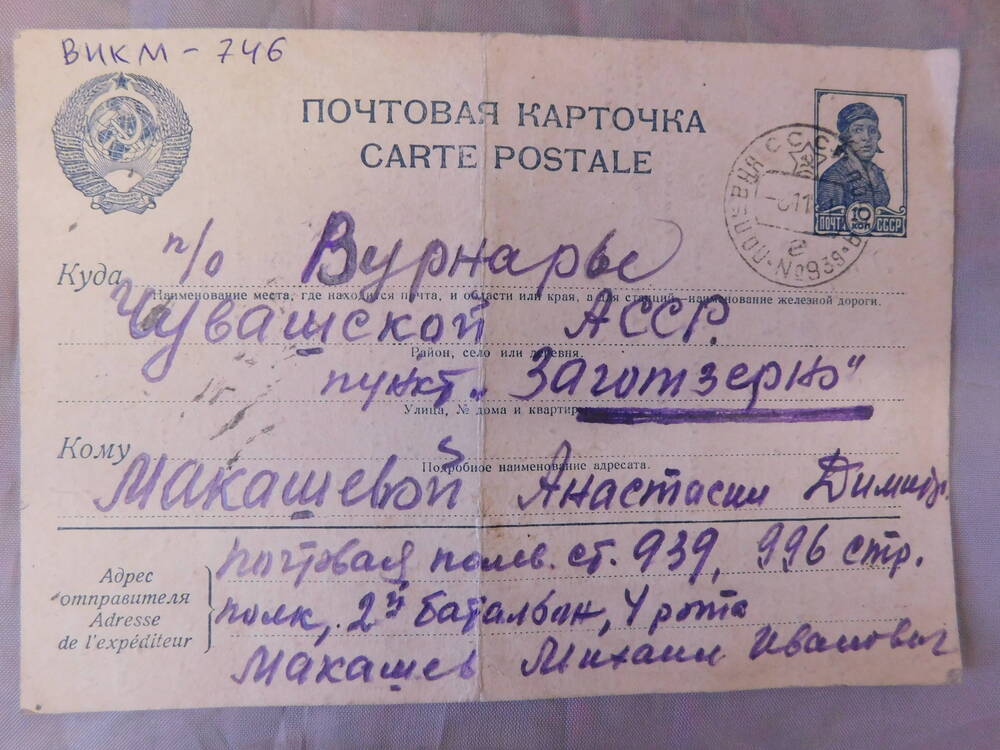 ВИКМ - 746
ПОЧТОВАЯ КАРТОЧКА
CARTE POSTALE
ПОЧТА 10 КОП СССР
СССР
№ 939
Куда п/о Вурнарье
Наименование места, где находится почта, и области или края, а для станций—наименование железной дороги.
Чувашской АССР.
Район, село или деревня.
пункт „Заготзерно"
Улица, № дома и квартиры
Кому
Подробное наименование адресата.
Макашевой Анастасии Димитр.
Адрес отправителя
Adresse de l'expéditeur
почтовая полев. ст. 939, 996 стр.
полк, 2й батальон, 4 рота
Макашев Михаил Иванович